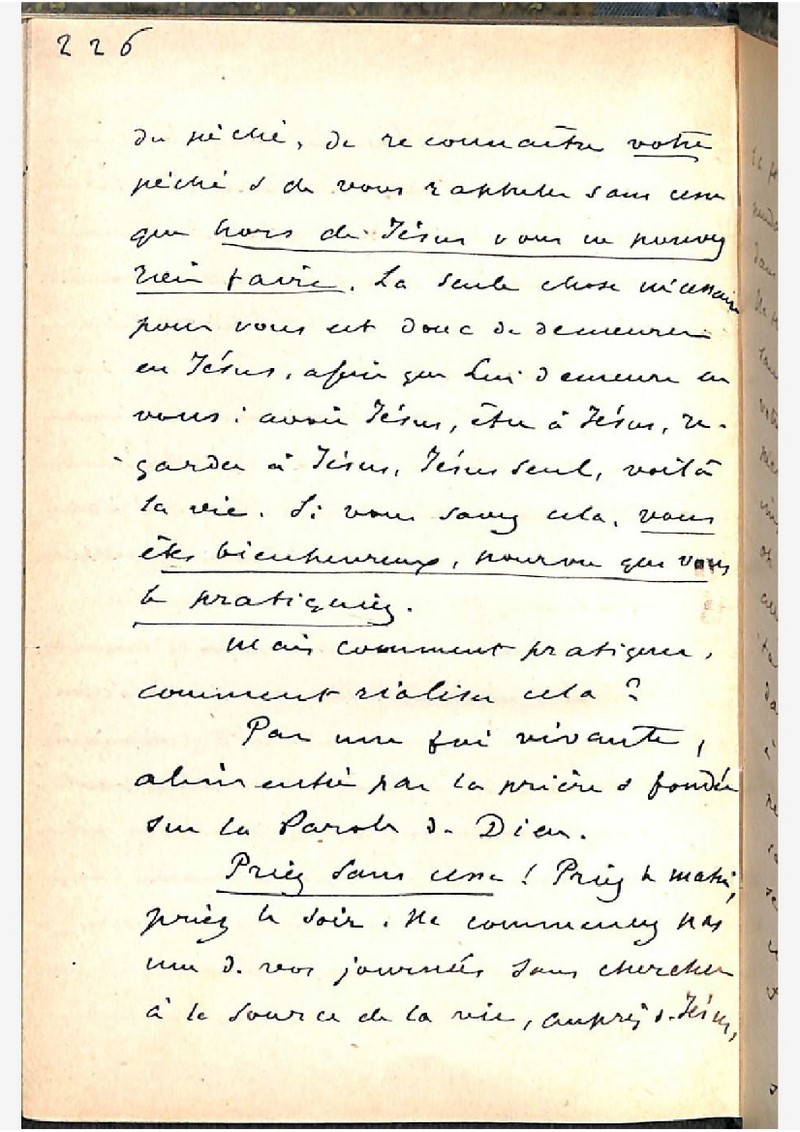 226
du péché, de reconnaître votre
péché & de vous rappeler sans cesse
que hors de Jésus vous ne pouvez
rien faire. La seule chose nécessaire
pour vous est donc de demeurer
en Jésus, afin que Lui demeure en
vous : avoir Jésus, être à Jésus, re-
garder à Jésus, Jésus seul, voilà
la vie. Si vous savez cela, vous
êtes bienheureux, pourvu que vous
le pratiquiez.
Mais comment pratiquer,
comment réaliser cela ?
Par une foi vivante,
alimentée par la prière & fondée
sur la Parole de Dieu.
Priez sans cesse ! Priez le matin,
priez le soir. Ne commencez pas
une de vos journées sans chercher
à la source de la vie, auprès de Jésus,